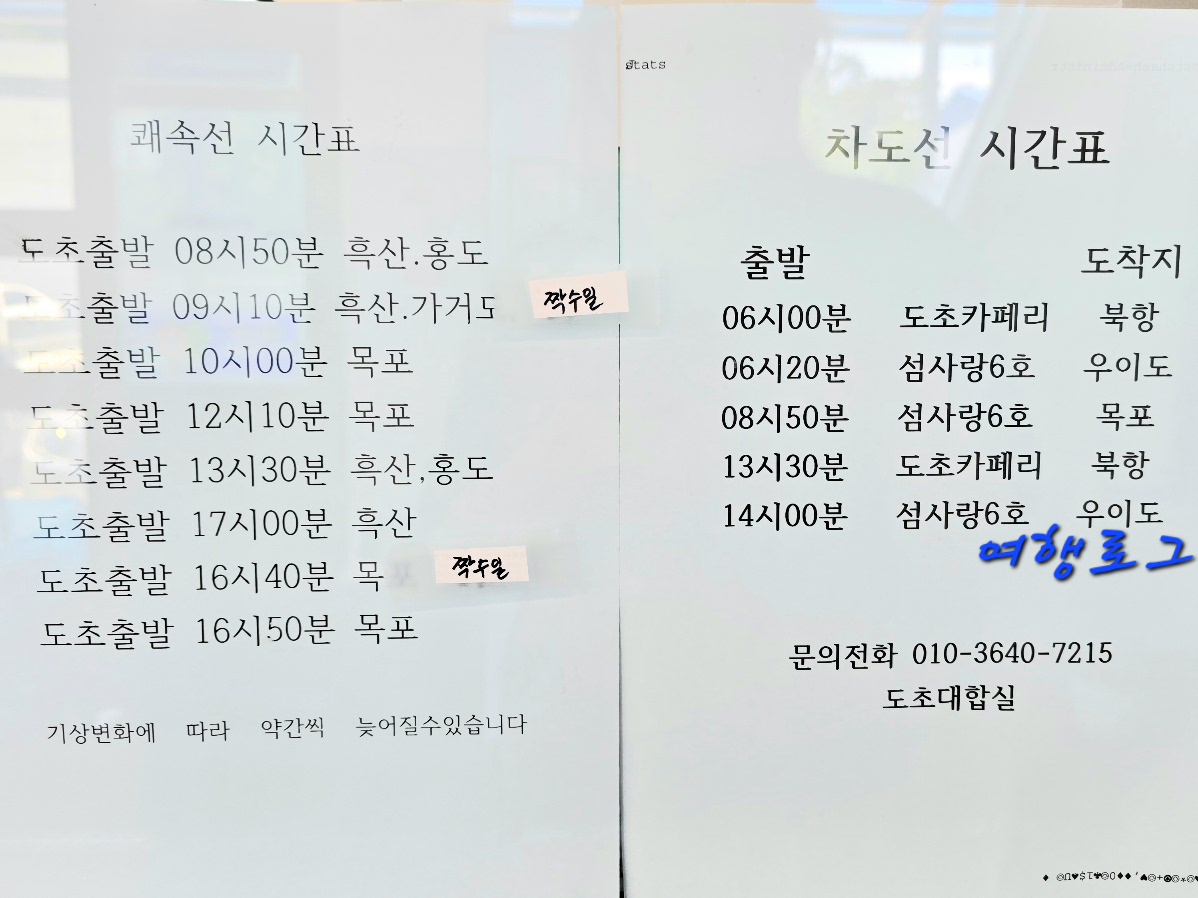 쾌속선 시간표
도초출발 08시50분 흑산.홍도
도초출발 09시10분 흑산.가거도 짝수일
도초출발 10시00분 목포
도초출발 12시10분 목포
도초출발 13시30분 흑산,홍도
도초출발 17시00분 흑산
도초출발 16시40분 목 짝수일
도초출발 16시50분 목포
기상변화에 따라 약간씩 늦어질수있습니다
차도선 시간표
출발 도착지
06시00분 도초카페리 북항
06시20분 섬사랑6호 우이도
08시50분 섬사랑6호 목포
13시30분 도초카페리 북항
14시00분 섬사랑6호 우이도
여행로그
문의전화 010-3640-7215
도초대합실